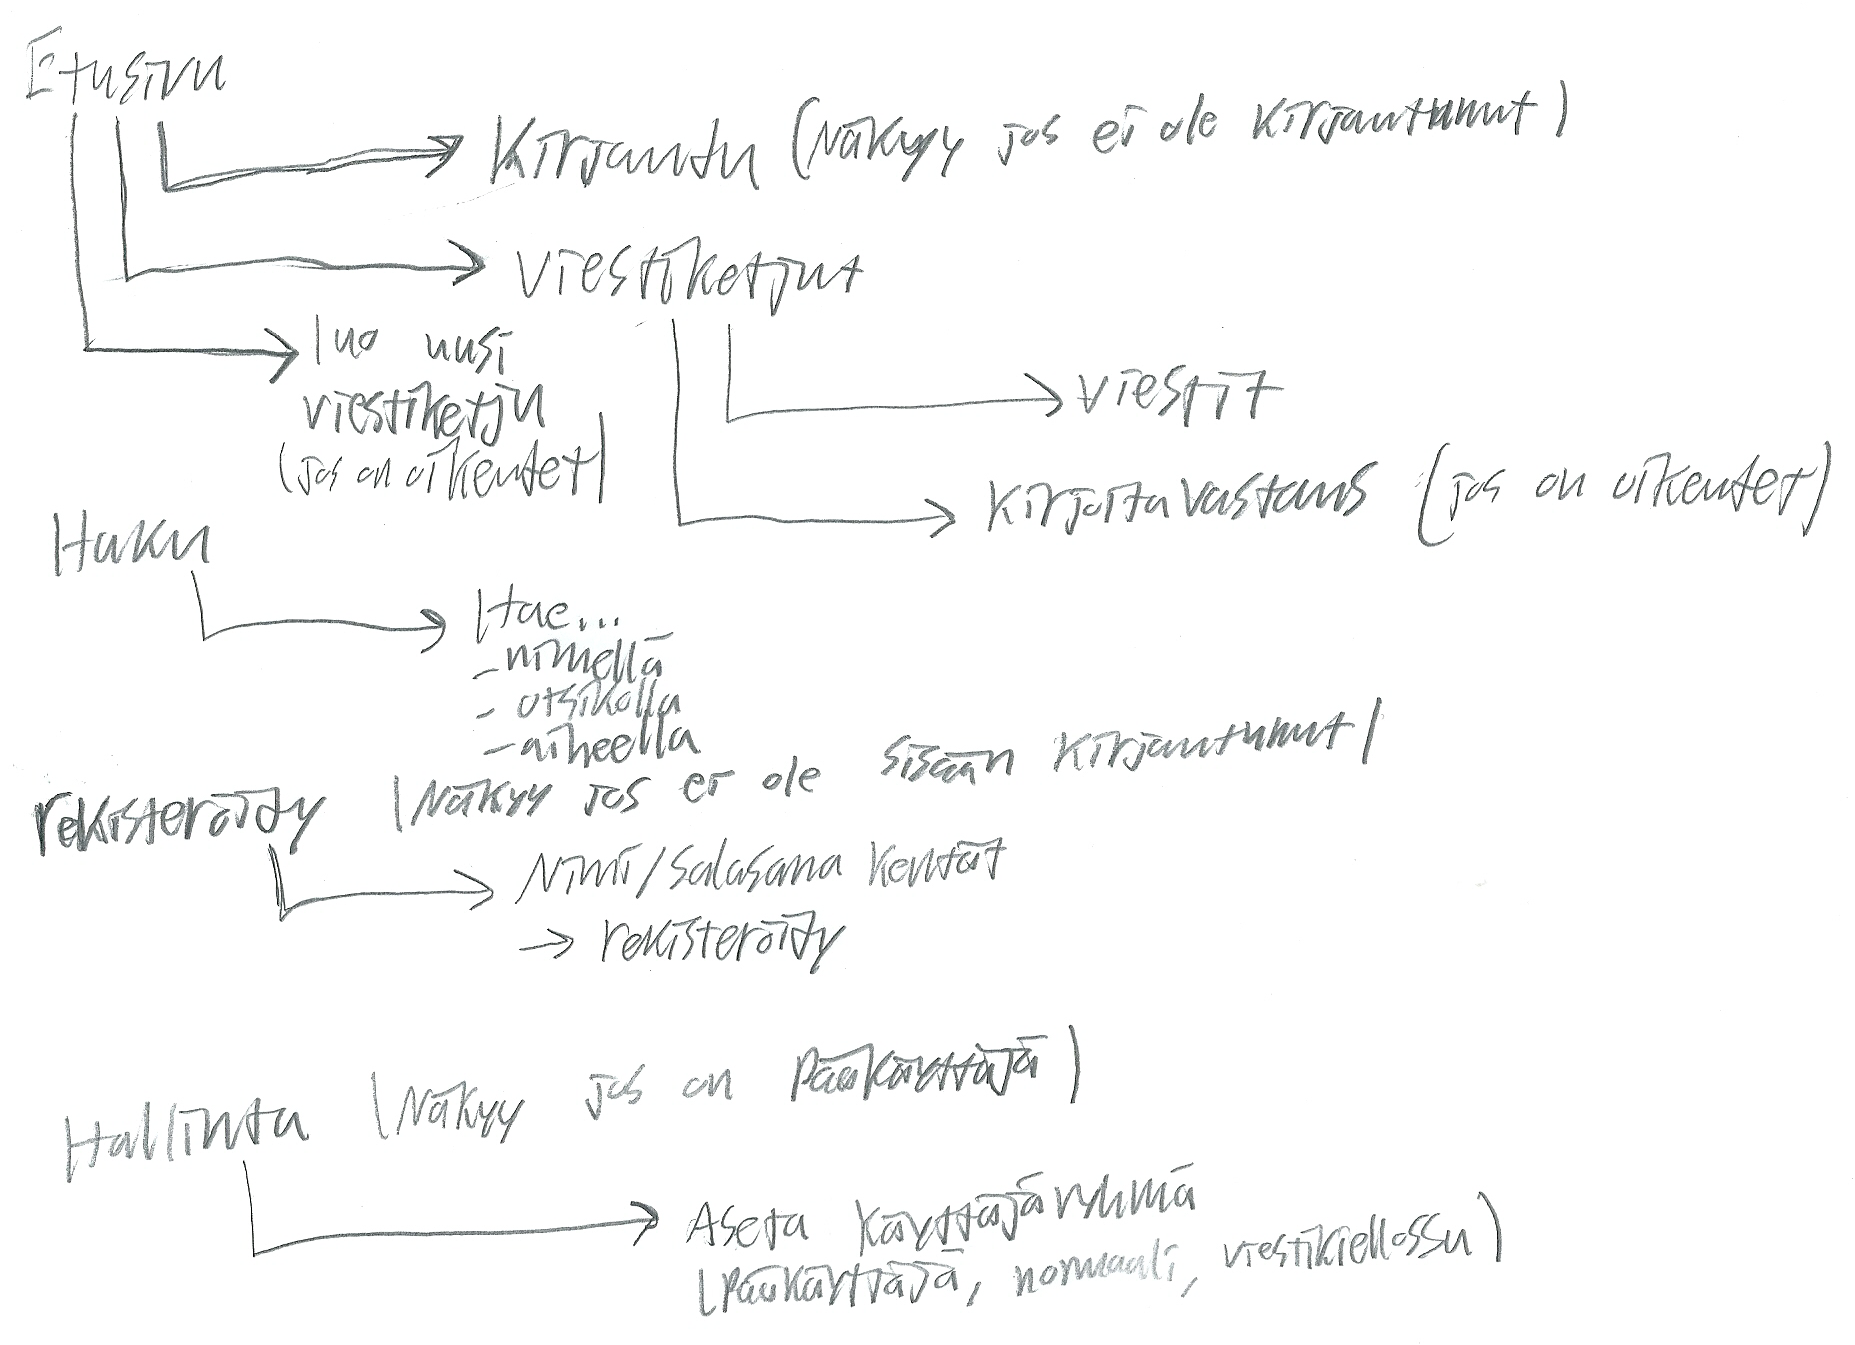 Etusivu
Kirjaudu (Näkyy jos ei ole kirjautunut)
Viestiketjut
luo uusi
viestiketju
(jos on oikeudet)
viestit
kirjoita vastaus (jos on oikeudet)
Haku
Hae...
- nimellä
- otsikolla
- aiheella
rekisteröidy (Näkyy jos ei ole sisään kirjautunut)
Nimi/salasana kentät
→ rekisteröidy
Hallinta (Näkyy jos on Pääkäyttäjä)
Aseta käyttäjäryhmä
(Pääkäyttäjä, normaali, viestikiellossa)